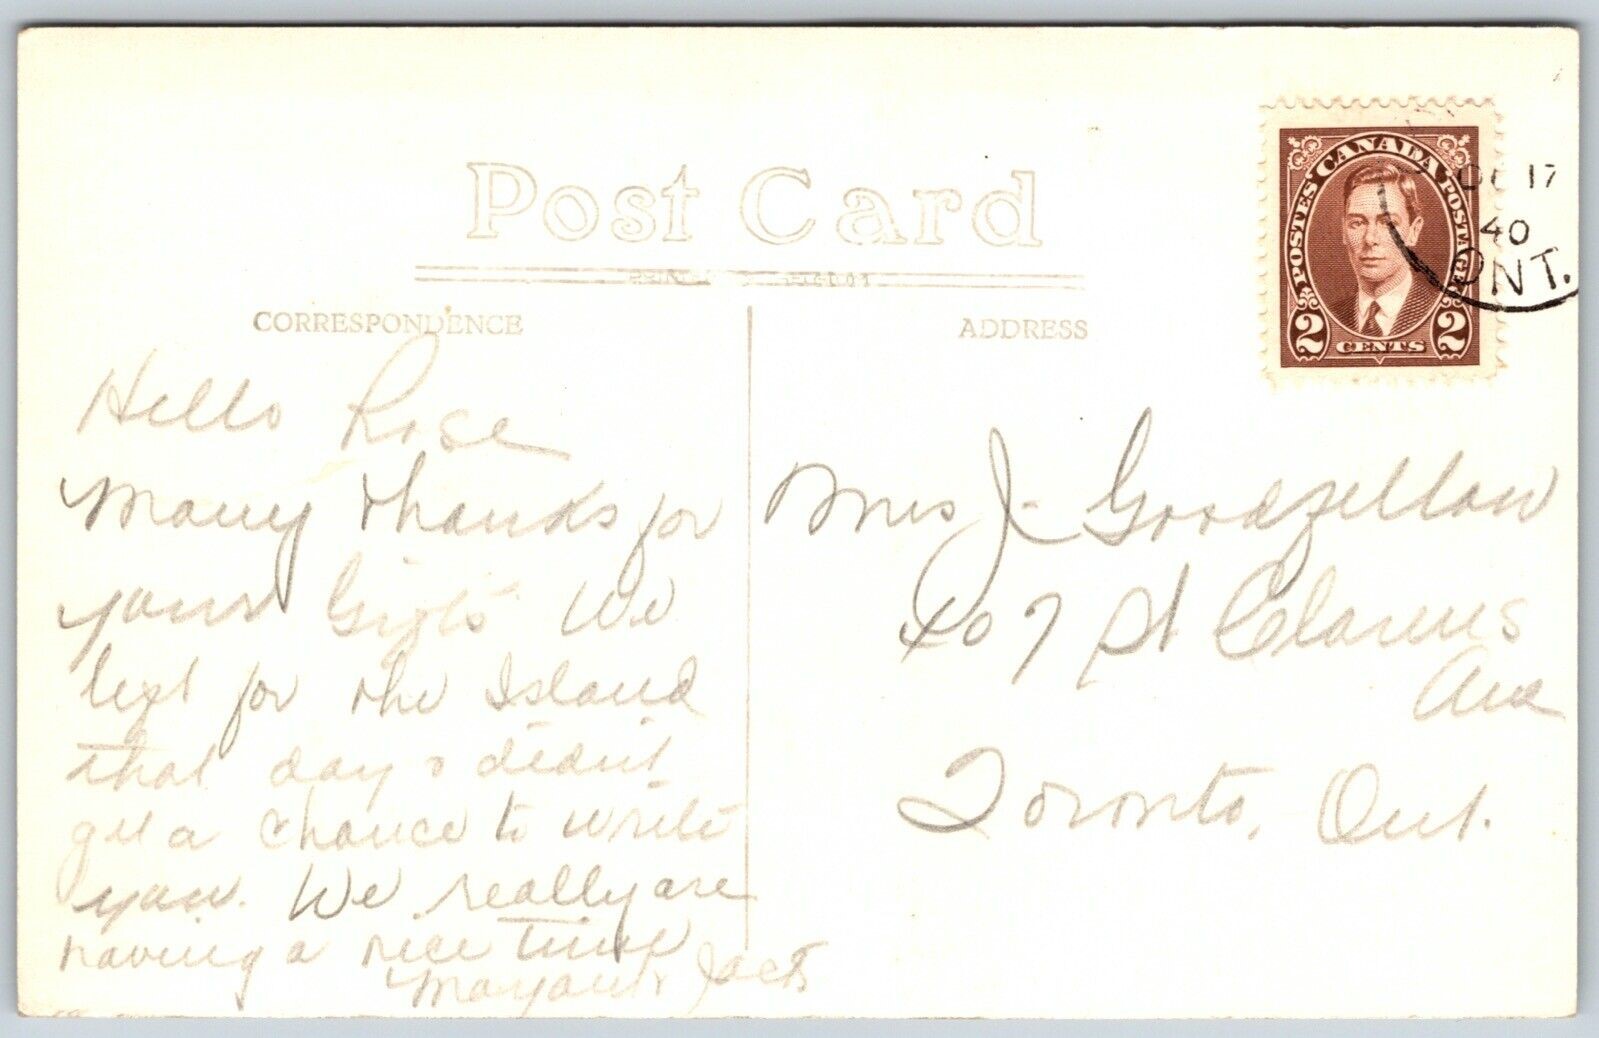 Post Card
CORRESPONDENCE
ADDRESS
POSTES CANADA POSTAGE
2 CENTS 2
OC 17
40
ONT.
Hello Rose
Many thanks for
your Gifts We
left for the Island
that day & didn't
get a chance to write
you. We really are
having a nice time
Jack
Mrs J. Goodfellow
407 St Clarens
Ave
Toronto, Ont.